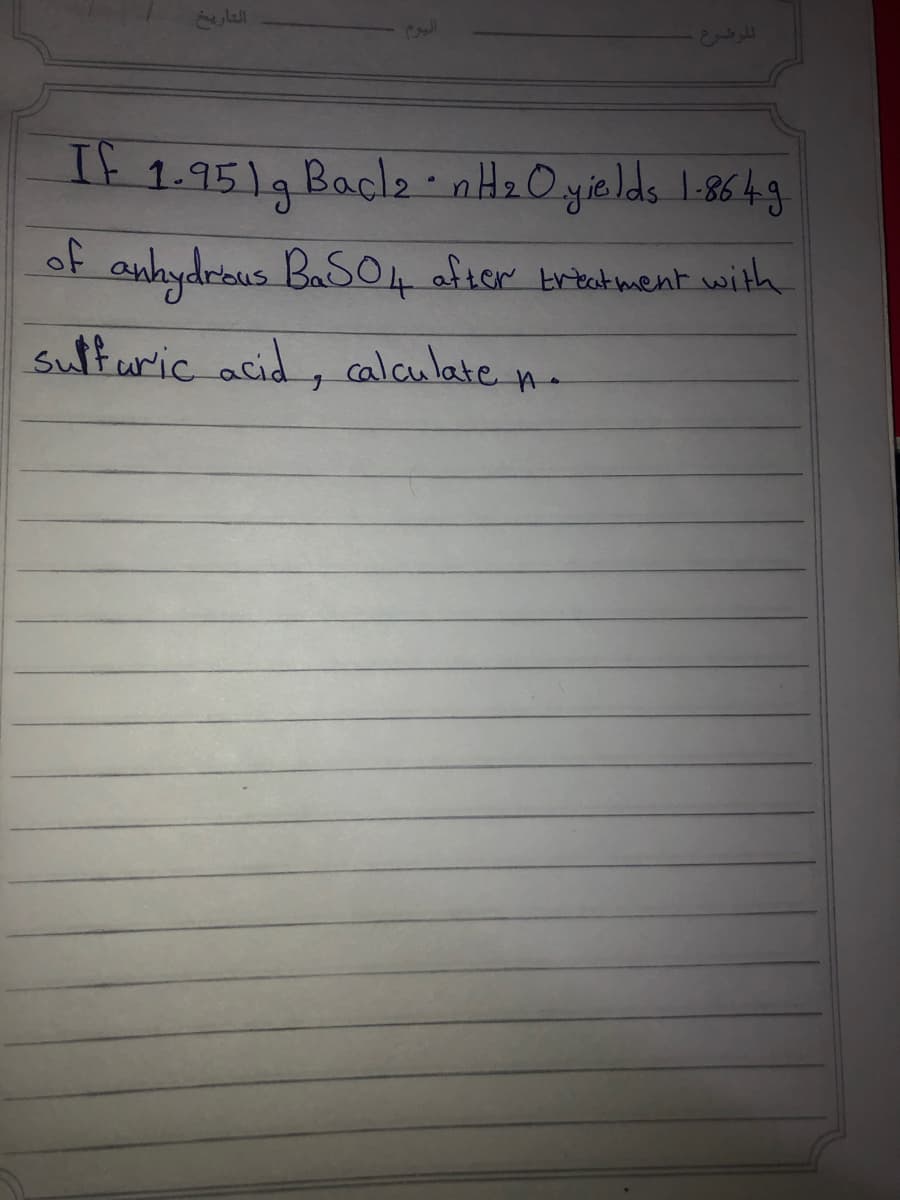 التاريخ اليوم الموضوع
If 1.951g Bacl2 · nH2O yields 1.864g
of anhydrous BaSO4 after treatment with
sulfuric acid, calculate n.